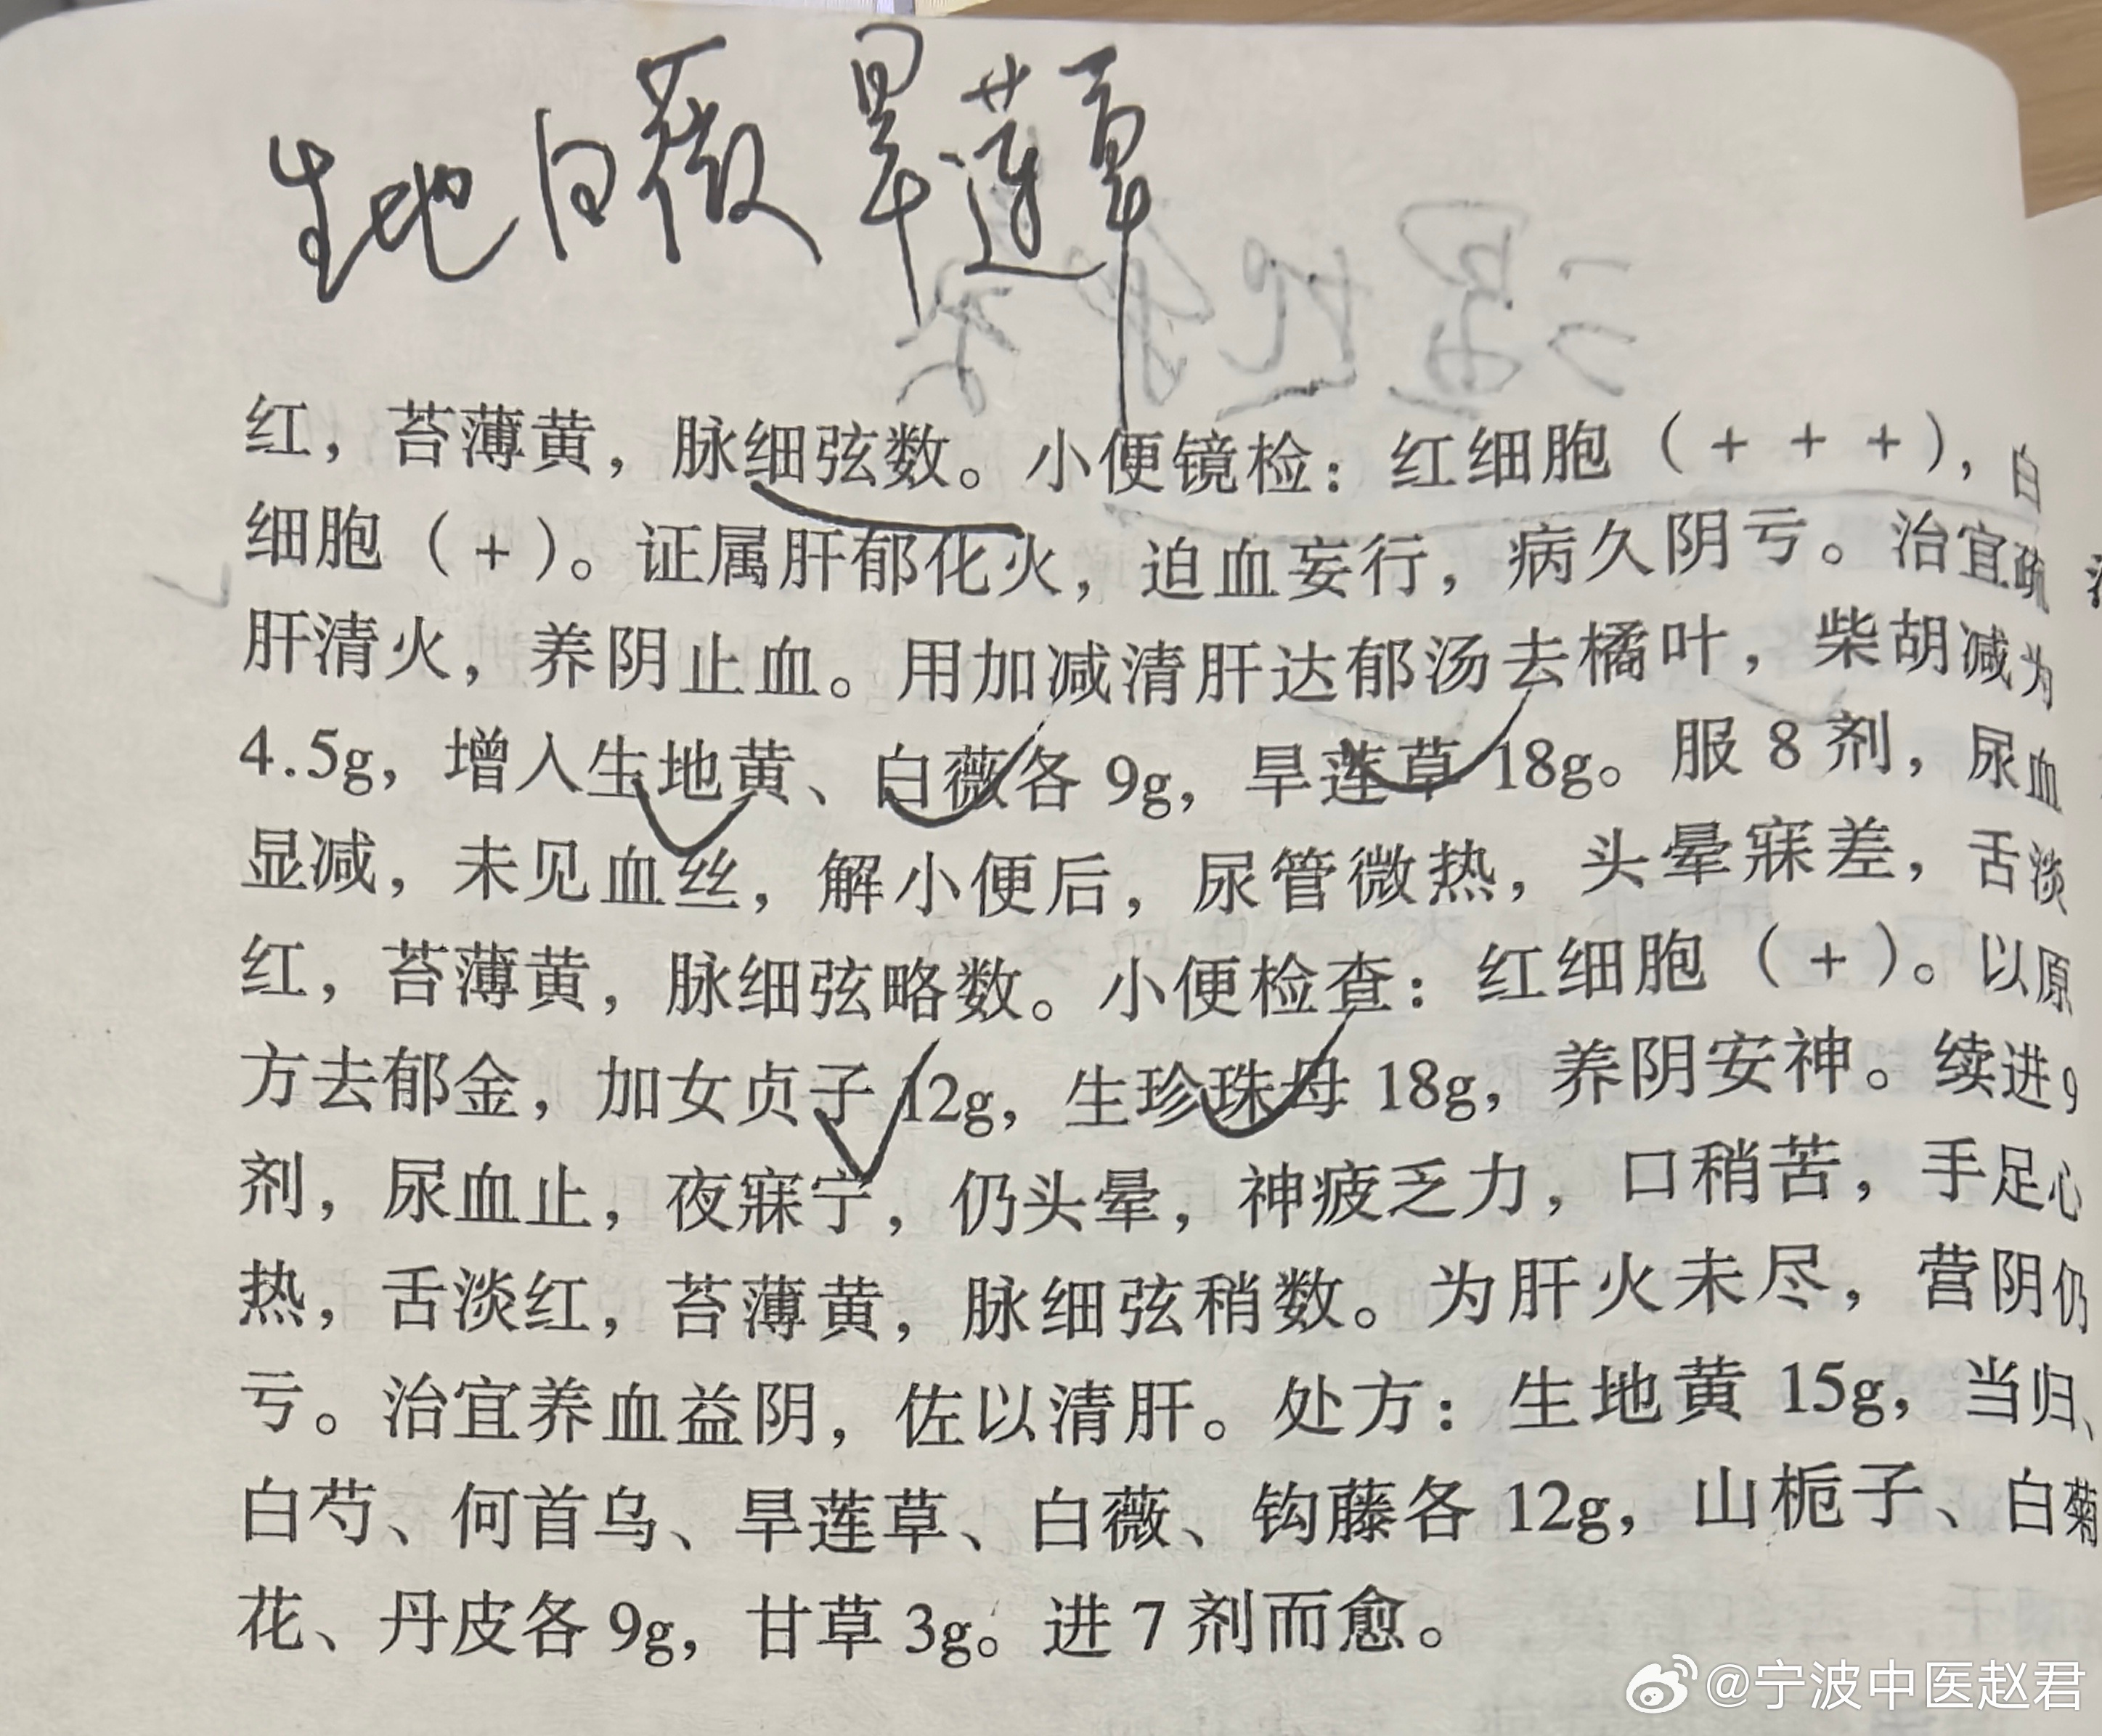 生地 白薇 旱莲草
红，苔薄黄，脉细弦数。小便镜检：红细胞（+ + +），白
细胞（+）。证属肝郁化火，迫血妄行，病久阴亏。治宜疏
肝清火，养阴止血。用加减清肝达郁汤去橘叶，柴胡减为
4.5g，增入生地黄、白薇各 9g，旱莲草 18g。服 8 剂，尿血
显减，未见血丝，解小便后，尿管微热，头晕寐差，舌淡
红，苔薄黄，脉细弦略数。小便检查：红细胞（+）。以原
方去郁金，加女贞子 12g，生珍珠母 18g，养阴安神。续进 9
剂，尿血止，夜寐宁，仍头晕，神疲乏力，口稍苦，手足心
热，舌淡红，苔薄黄，脉细弦稍数。为肝火未尽，营阴仍
亏。治宜养血益阴，佐以清肝。处方：生地黄 15g，当归、
白芍、何首乌、旱莲草、白薇、钩藤各 12g，山栀子、白菊
花、丹皮各 9g，甘草 3g。进 7 剂而愈。
@宁波中医赵君